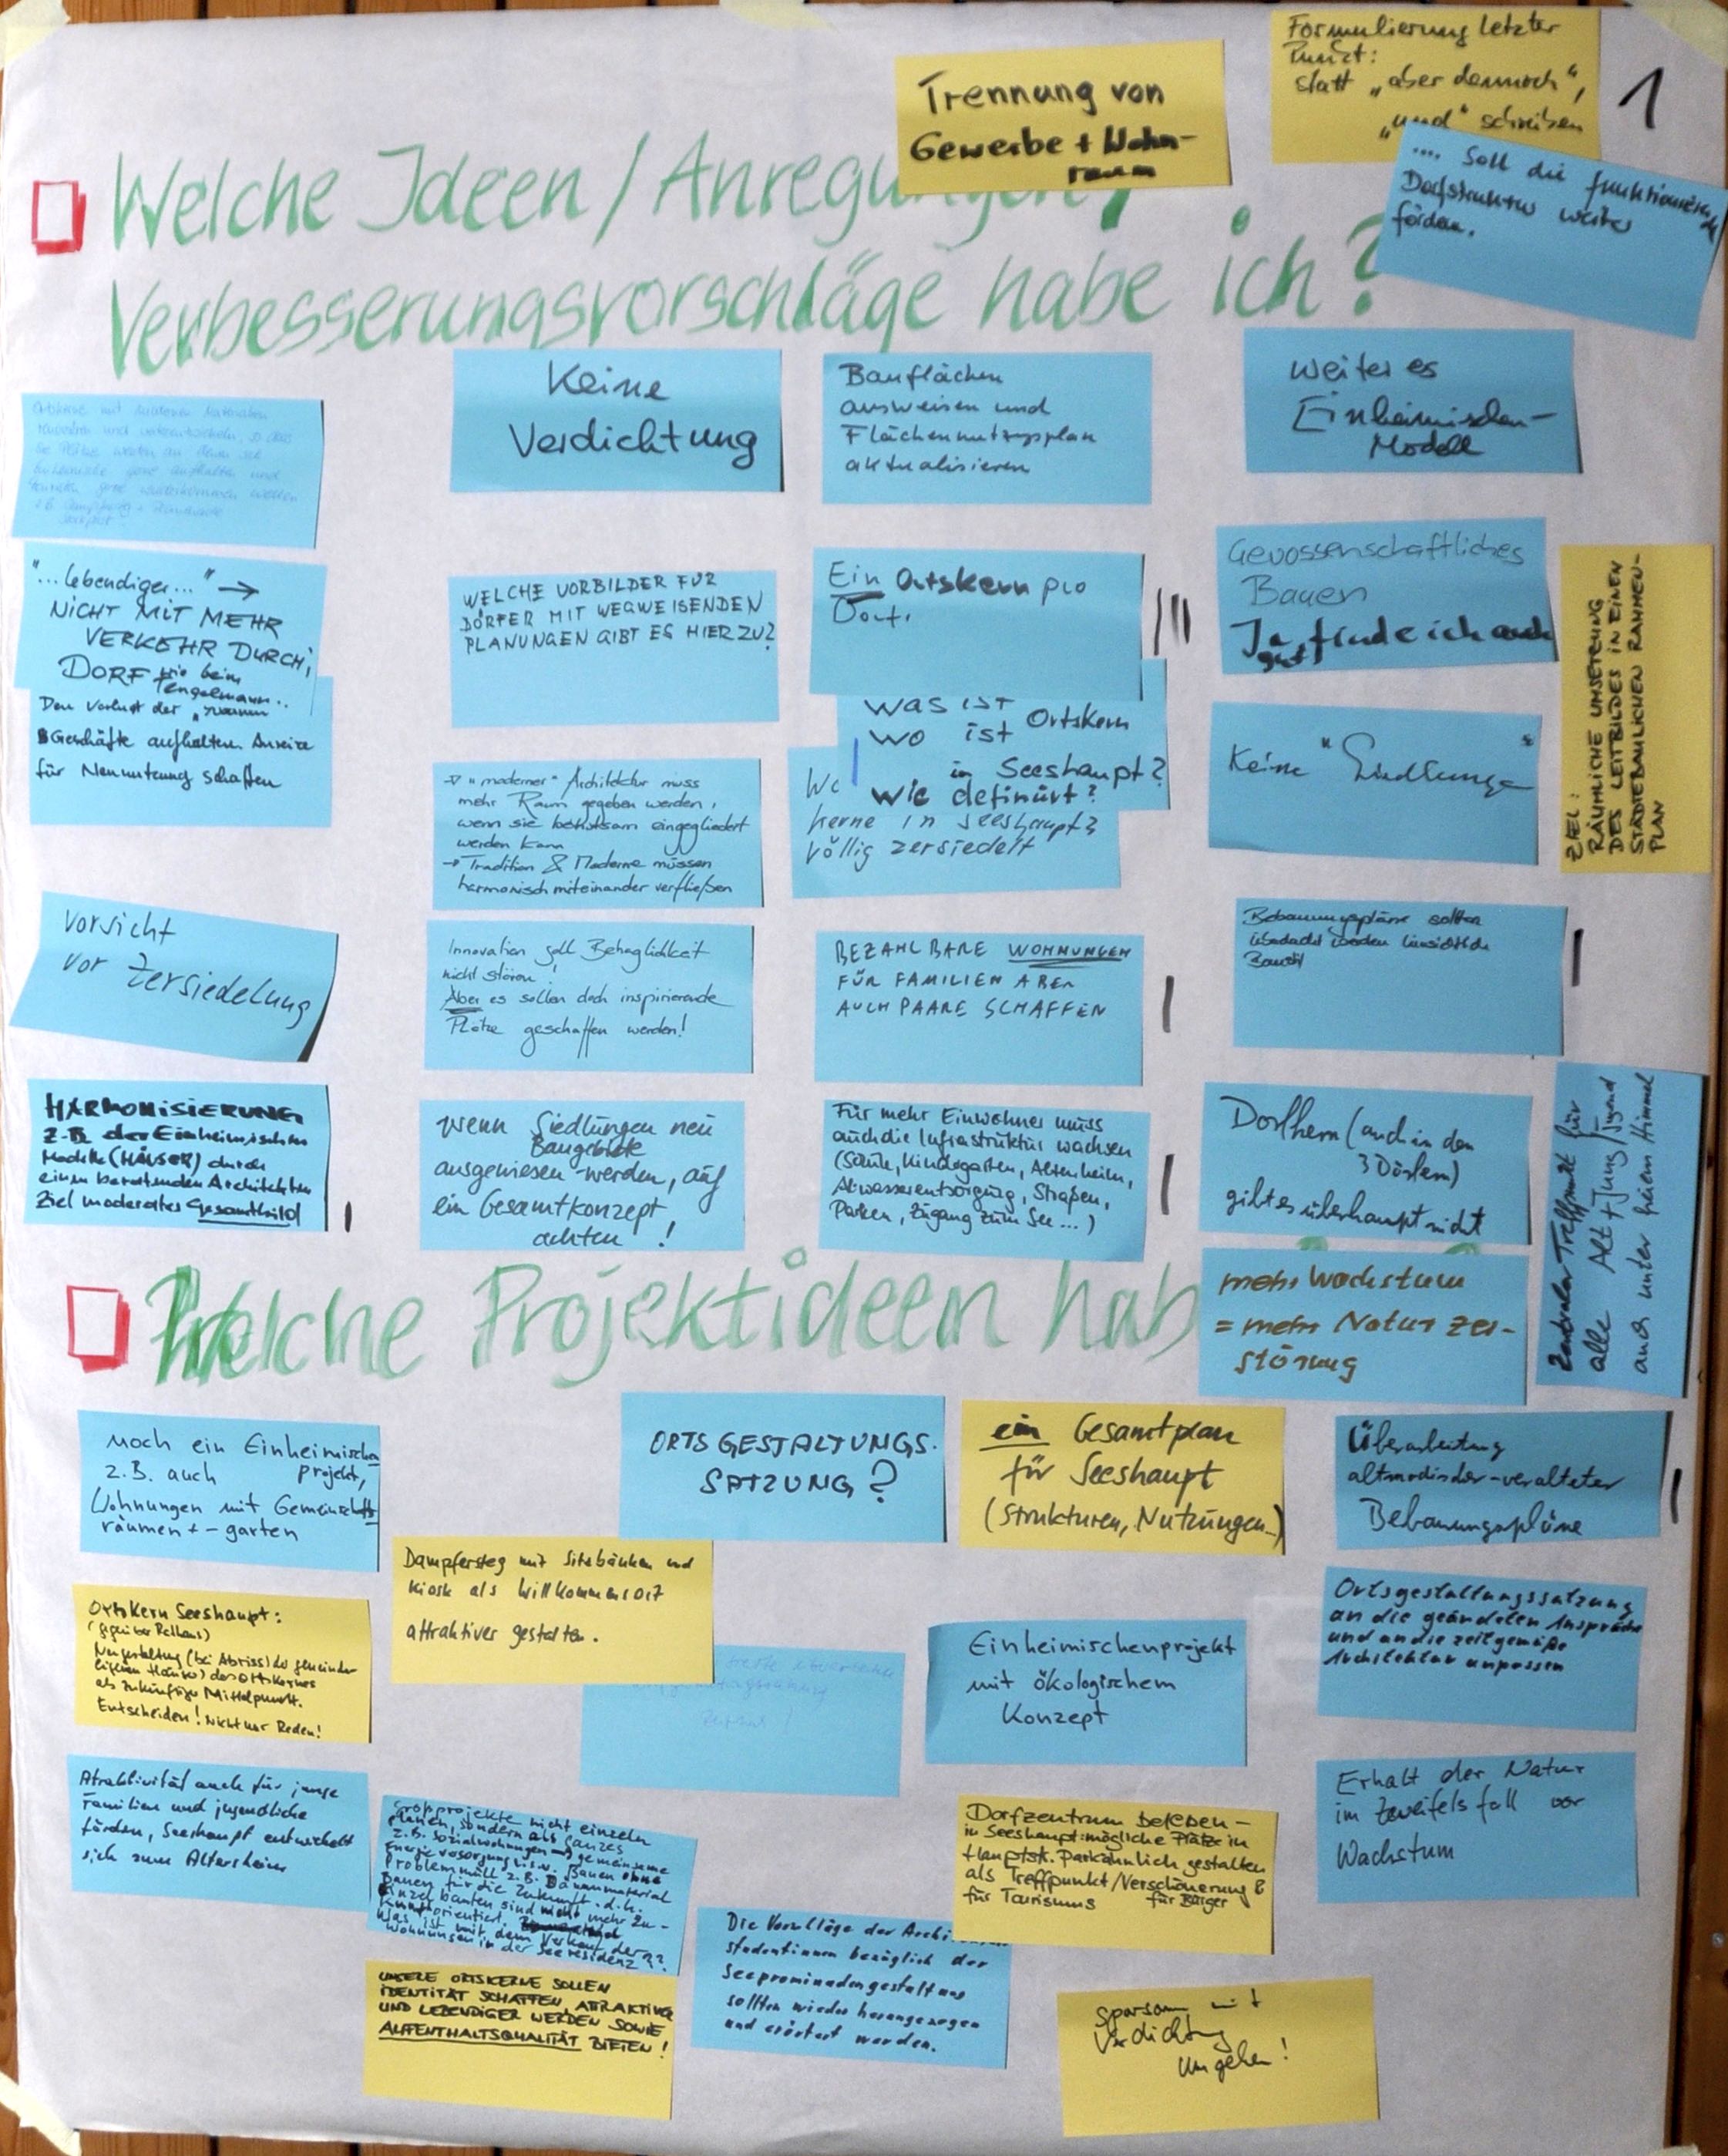 Formulierung letzter
Punkt:
statt „aber dennoch",
„und" schreiben
1
Trennung von
Gewerbe + Wohn-
raum
.... soll die funktionierende
Dorfstruktur weiter
fördern.
Welche Ideen / Anregungen,
Verbesserungsvorschläge habe ich?
Keine
Verdichtung
Bauflächen
ausweisen und
Flächennutzungsplan
aktualisieren
weiteres
Einheimischen-
Modell
"...lebendiger..." →
NICHT MIT MEHR
VERKEHR DURCH'S
DORF wie beim
Tengelmann..
Den Verlust der
Geschäfte aufhalten. Anreize
für Neunutzung schaffen
WELCHE VORBILDER FÜR
DÖRFER MIT WEGWEISENDEN
PLANUNGEN GIBT ES HIERZU?
Ein Ortskern pro
Dorf.
Genossenschaftliches
Bauen
Ja finde ich auch
gut
ZIEL:
RÄUMLICHE UMSETZUNG
DES LEITBILDES IN EINEN
STÄDTEBAULICHEN RAHMEN-
PLAN
Was ist
wo ist Ortskern
in Seeshaupt?
wie definiert?
kerne in Seeshaupt?
völlig zersiedelt
Keine "Siedlunge"
→ "moderner" Architektur muss
mehr Raum gegeben werden,
wenn sie behutsam eingegliedert
werden kann
→ Tradition & Moderne müssen
harmonisch miteinander verfließen
Vorsicht
vor Zersiedelung
Innovation soll Behaglichkeit
nicht stören!
Aber es sollen doch inspirierende
Plätze geschaffen werden!
BEZAHLBARE WOHNUNGEN
FÜR FAMILIEN ABER
AUCH PAARE SCHAFFEN
Bebauungspläne sollten
überdacht werden hinsichtlich
Baustil
HARMONISIERUNG
z.B. der Einheimischen
Modelle (HÄUSER) durch
einen beratenden Architekten
Ziel moderates Gesamtbild
wenn Siedlungen neu
Baugebiete
ausgewiesen werden, auf
ein Gesamtkonzept
achten !
Für mehr Einwohner muss
auch die Infrastruktur wachsen
(Schule, Kindergarten, Altenheim,
Abwasserentsorgung, Straßen,
Parken, Zugang zum See ...)
Dorfkern (auch in den
3 Dörfern)
gibt es überhaupt nicht
Zentraler Treffpunkt für
alle Alt + Jung / Jugend
auch unter freiem Himmel
Welche Projektideen hab
mehr Wachstum
= mehr Natur zer-
störung
Noch ein Einheimischen
z.B. auch projekt,
Wohnungen mit Gemeinschafts
räumen + -garten
ORTSGESTALTUNGS.
SATZUNG?
ein Gesamtplan
für Seeshaupt
(Strukturen, Nutzungen...)
Überarbeitung
altmodischer-veralteter
Bebauungspläne
Dampfersteg mit Sitzbänken und
Kiosk als Willkommensort
attraktiver gestalten.
Ortskern Seeshaupt:
(gegenüber Rathaus)
Neugestaltung (bei Abriss) der gemeinde
eigenen Häuser) des Ortskernes
als zukünftiger Mittelpunkt.
Entscheiden! Nicht nur Reden!
Einheimischenprojekt
mit ökologischem
Konzept
Ortsgestaltungssatzung
an die geänderten Ansprüche
und an die zeitgemäße
Architektur anpassen
Atraktivität auch für junge
Familien und jugendliche
fördern, Seeshaupt entwickelt
sich zum Altersheim
Großprojekte nicht einzeln
planen, sondern als Ganzes
z.B. Sozialwohnungen → gemeinsame
Energieversorgung u.s.w. Bauen ohne
Problemmüll z.B. Dämmmaterial
Bauen für die Zukunft d.h.
Einzelbauten sind nicht mehr zu-
kunftorientiert.
Was ist mit dem Verkauf der
Wohnungen in der Seeresidenz??
Dorfzentrum beleben -
in Seeshaupt: mögliche Plätze in
Hauptstr. parkähnlich gestalten
als Treffpunkt / Verschönerung &
für Tourismus für Bürger
Erhalt der Natur
im Zweifelsfall vor
Wachstum
Die Vorschläge der Archi
studentinnen bezüglich der
Seeprominadengestaltung
sollten wieder herangezogen
und erörtert werden.
UNSERE ORTSKERNE SOLLEN
IDENTITÄT SCHAFFEN, ATTRAKTIVER
UND LEBENDIGER WERDEN SOWIE
AUFENTHALTSQUALITÄT BIETEN!
Sparsam mit
Verdichtung
umgehen!